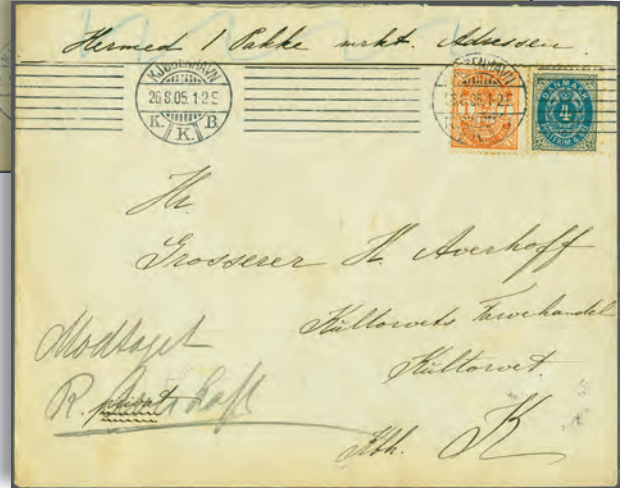 Hermed 1 Pakke mrkt. Adressen.
KJØBENHAVN
26.8.05. 1-2 E
K. K. B.
KJØBENHAVN
DANMARK
4
Hr.
Grosserer H. Averhoff
Kultorvets Farvehandel
Kultorvet.
Kbh. K
Modtaget
R.
privat